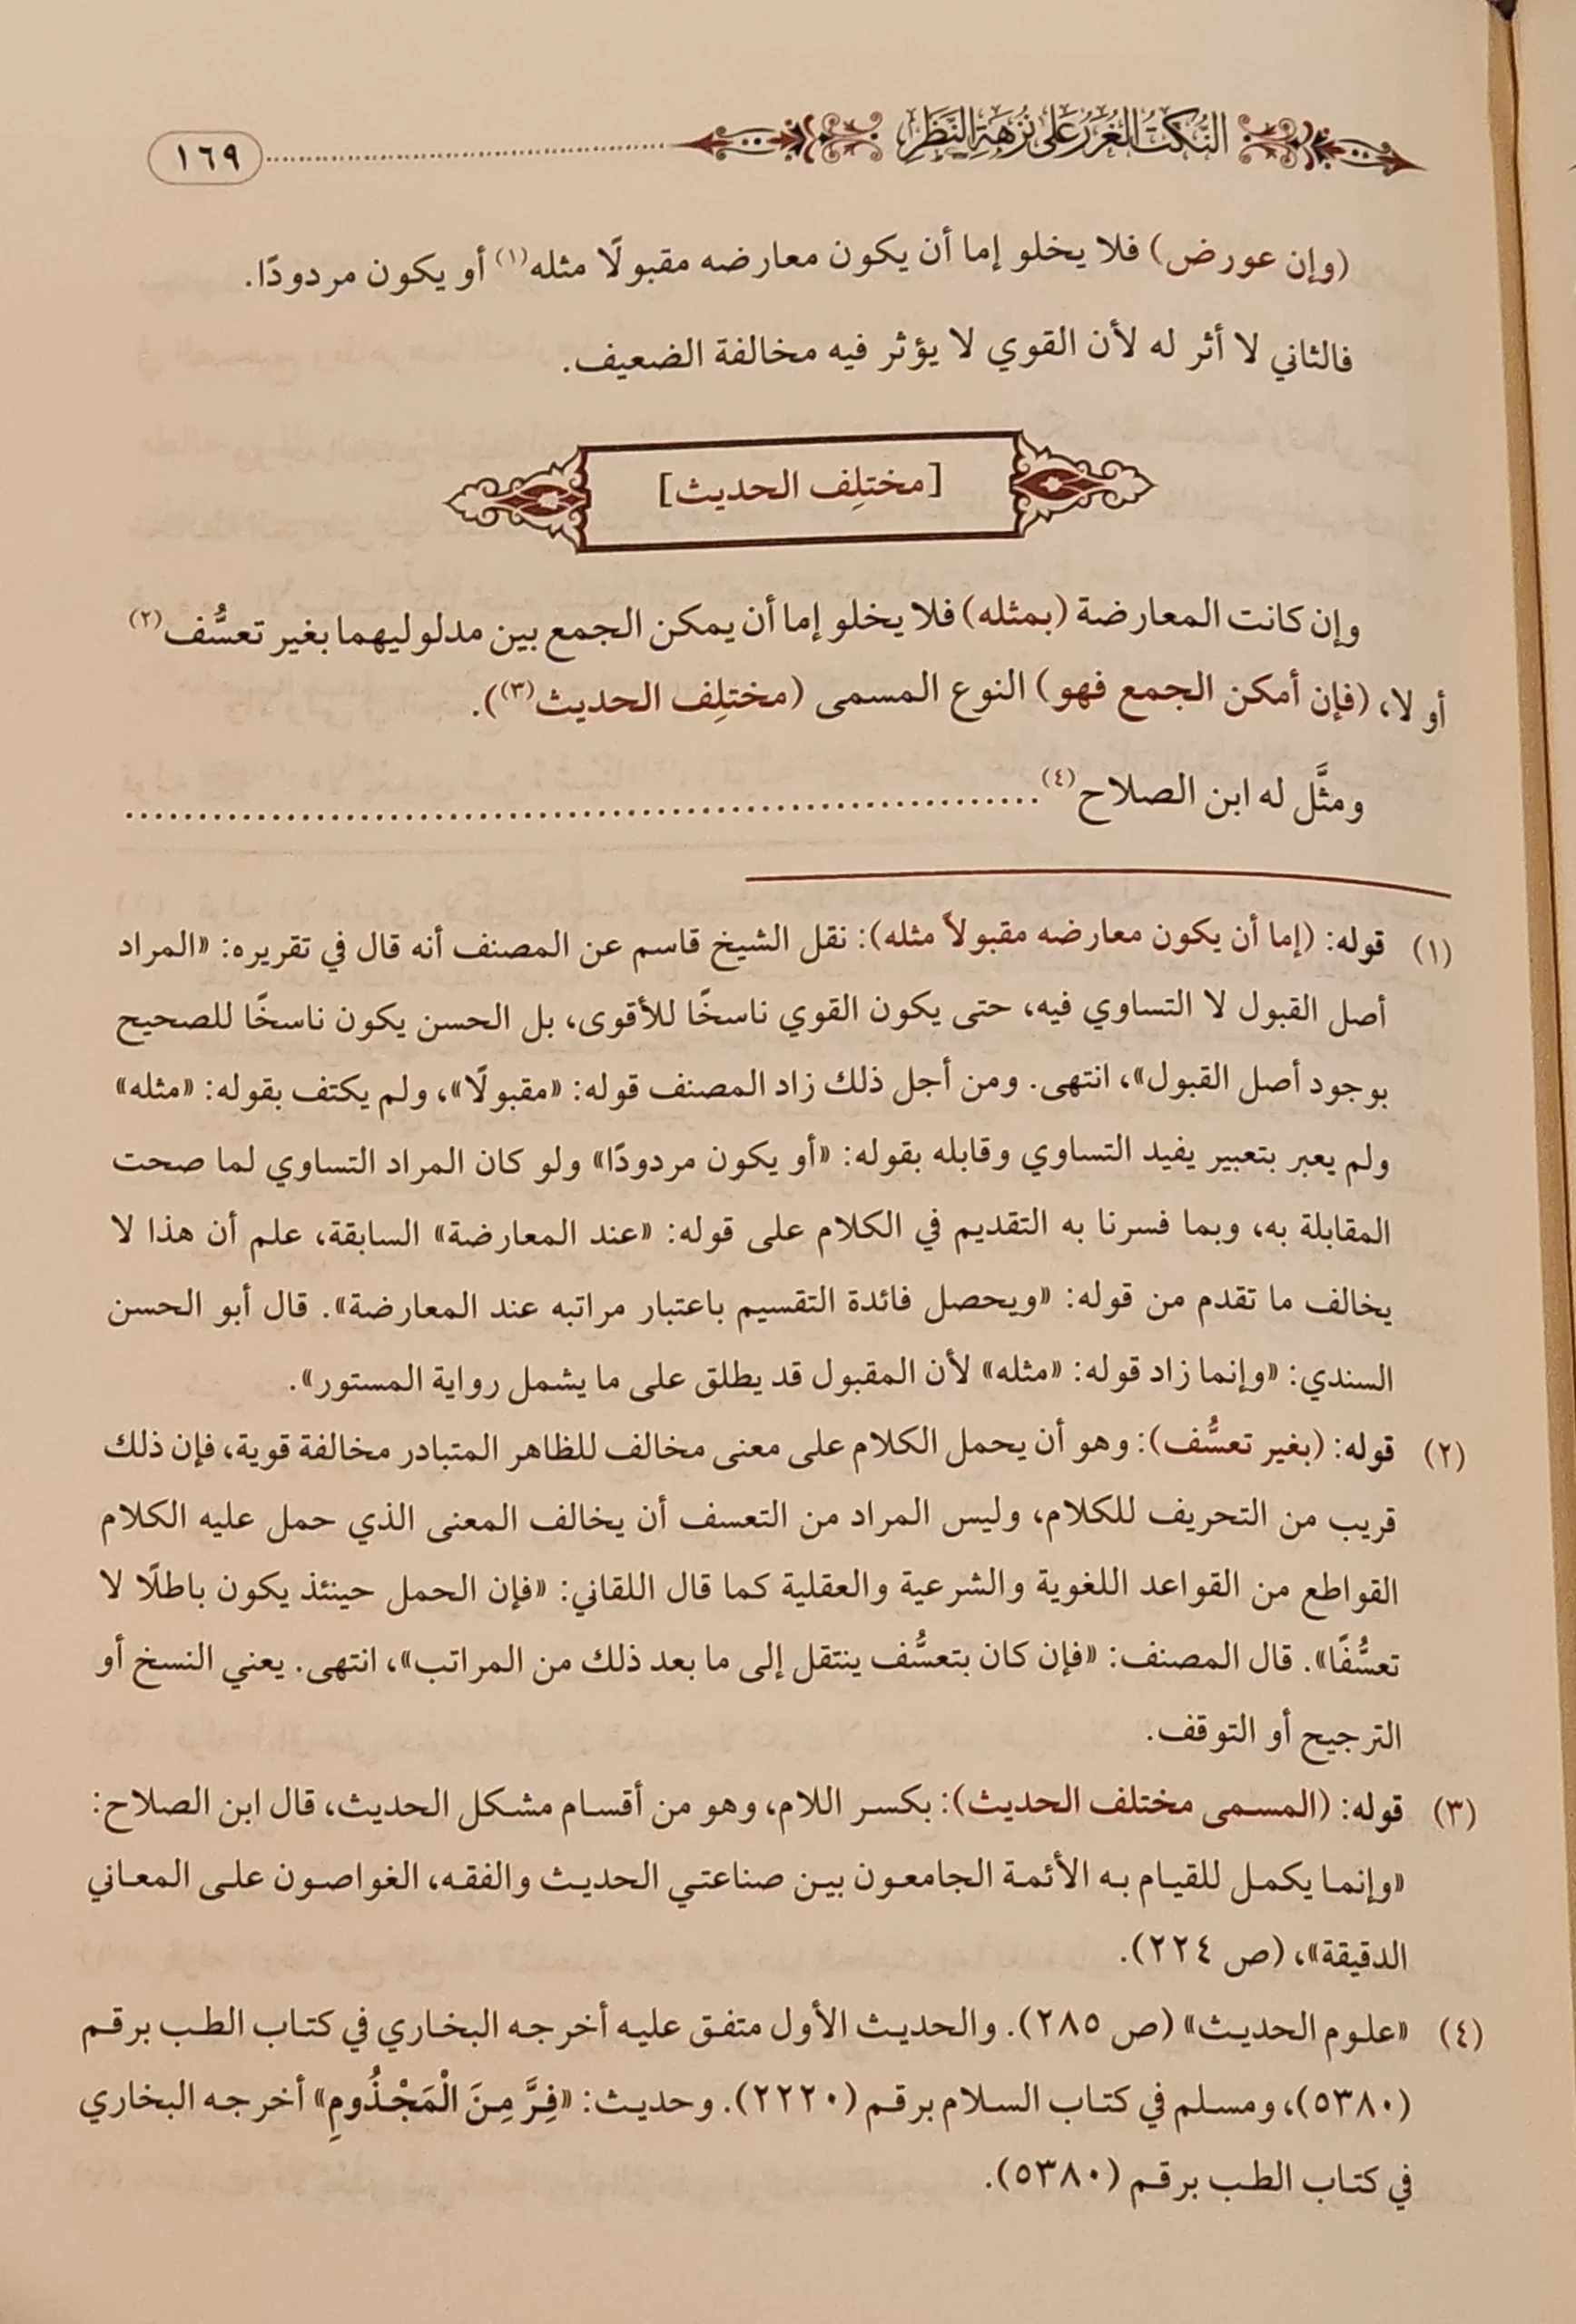 النكت الغرر على نزهة النظر ١٦٩
(وإن عورض) فلا يخلو إما أن يكون معارضه مقبولًا مثله(١) أو يكون مردودًا.
فالثاني لا أثر له لأن القوي لا يؤثر فيه مخالفة الضعيف.
[مختلِف الحديث]
وإن كانت المعارضة (بمثله) فلا يخلو إما أن يمكن الجمع بين مدلوليهما بغير تعسُّف(٢)
أو لا، (فإن أمكن الجمع فهو) النوع المسمى (مختلِف الحديث(٣)).
ومثَّل له ابن الصلاح(٤)........................................................
(١) قوله: (إما أن يكون معارضه مقبولاً مثله): نقل الشيخ قاسم عن المصنف أنه قال في تقريره: «المراد
أصل القبول لا التساوي فيه، حتى يكون القوي ناسخًا للأقوى، بل الحسن يكون ناسخًا للصحيح
بوجود أصل القبول»، انتهى. ومن أجل ذلك زاد المصنف قوله: «مقبولًا»، ولم يكتف بقوله: «مثله»
ولم يعبر بتعبير يفيد التساوي وقابله بقوله: «أو يكون مردودًا» ولو كان المراد التساوي لما صحت
المقابلة به، وبما فسرنا به التقديم في الكلام على قوله: «عند المعارضة» السابقة، علم أن هذا لا
يخالف ما تقدم من قوله: «ويحصل فائدة التقسيم باعتبار مراتبه عند المعارضة». قال أبو الحسن
السندي: «وإنما زاد قوله: «مثله» لأن المقبول قد يطلق على ما يشمل رواية المستور».
(٢) قوله: (بغير تعسُّف): وهو أن يحمل الكلام على معنى مخالف للظاهر المتبادر مخالفة قوية، فإن ذلك
قريب من التحريف للكلام، وليس المراد من التعسف أن يخالف المعنى الذي حمل عليه الكلام
القواطع من القواعد اللغوية والشرعية والعقلية كما قال اللقاني: «فإن الحمل حينئذ يكون باطلًا لا
تعسُّفًا». قال المصنف: «فإن كان بتعسُّف ينتقل إلى ما بعد ذلك من المراتب»، انتهى. يعني النسخ أو
الترجيح أو التوقف.
(٣) قوله: (المسمى مختلف الحديث): بكسر اللام، وهو من أقسام مشكل الحديث، قال ابن الصلاح:
«وإنما يكمل للقيام به الأئمة الجامعون بين صناعتي الحديث والفقه، الغواصون على المعاني
الدقيقة»، (ص ٢٢٤).
(٤) «علوم الحديث» (ص ٢٨٥). والحديث الأول متفق عليه أخرجه البخاري في كتاب الطب برقم
(٥٣٨٠)، ومسلم في كتاب السلام برقم (٢٢٢٠). وحديث: «فِرَّ مِنَ الْمَجْذُومِ» أخرجه البخاري
في كتاب الطب برقم (٥٣٨٠).